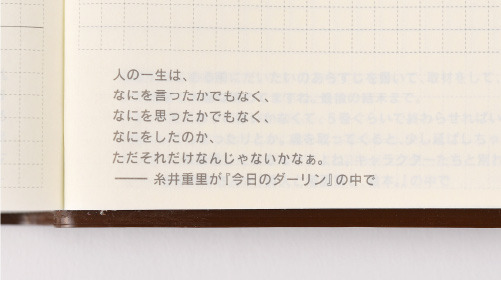 人の一生は、
なにを言ったかでもなく、
なにを思ったかでもなく、
なにをしたのか、
ただそれだけなんじゃないかなぁ。
── 糸井重里が『今日のダーリン』の中で